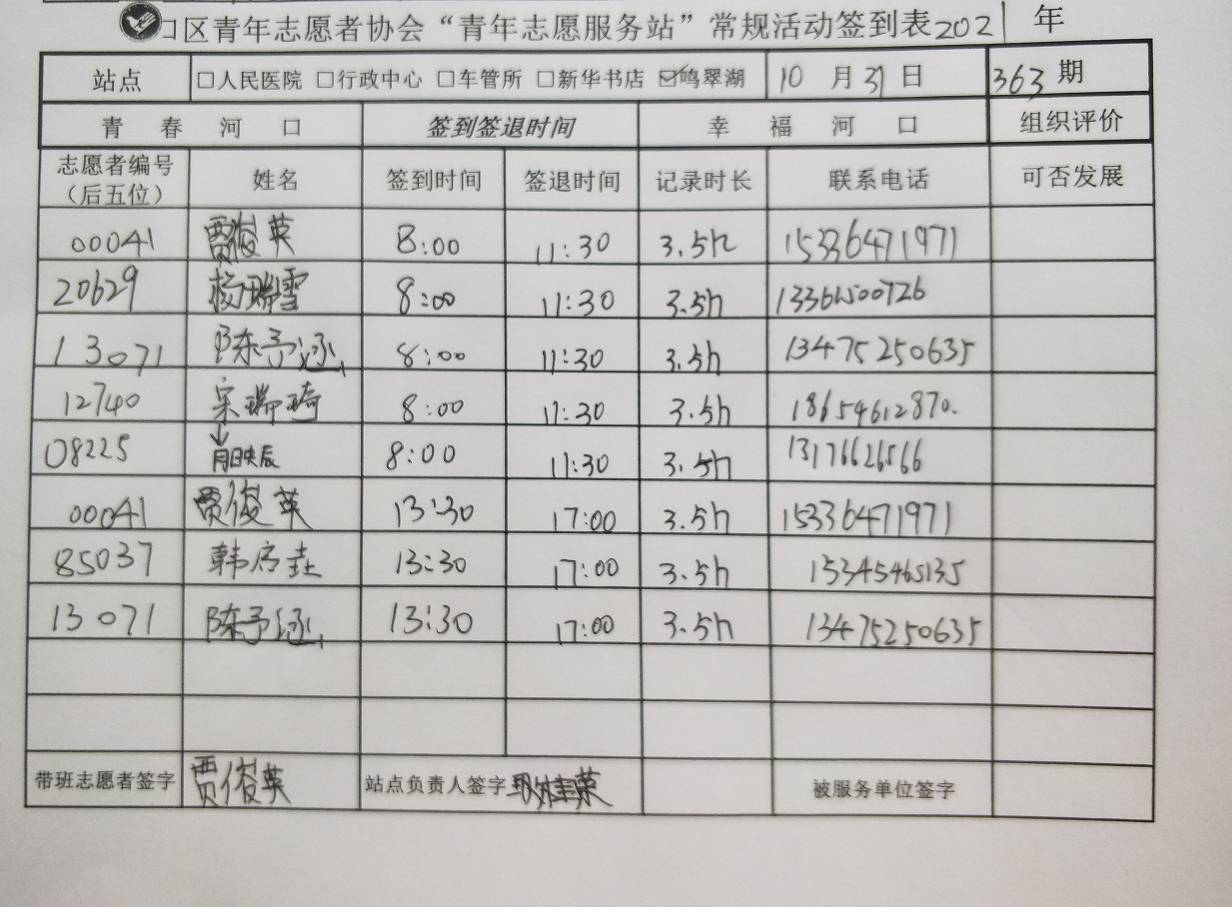 口区青年志愿者协会“青年志愿服务站”常规活动签到表2021年
站点 □人民医院 □行政中心 □车管所 □新华书店 ☑鸣翠湖 10月31日 363期
青春河口 签到签退时间 幸福河口 组织评价
志愿者编号（后五位） 姓名 签到时间 签退时间 记录时长 联系电话 可否发展
00041 贾俊英 8:00 11:30 3.5h 15336471971
20629 杨瑞雪 8:00 11:30 3.5h 13361500726
13071 陈予涵 8:00 11:30 3.5h 13475250635
12740 宋瑞琦 8:00 11:30 3.5h 18654612870.
08225 8:00 11:30 3.5h 13176626566
00041 贾俊英 13:30 17:00 3.5h 15336471971
85037 13:30 17:00 3.5h 15345465135
13071 陈予涵 13:30 17:00 3.5h 13475250635
带班志愿者签字 贾俊英 站点负责人签字 被服务单位签字